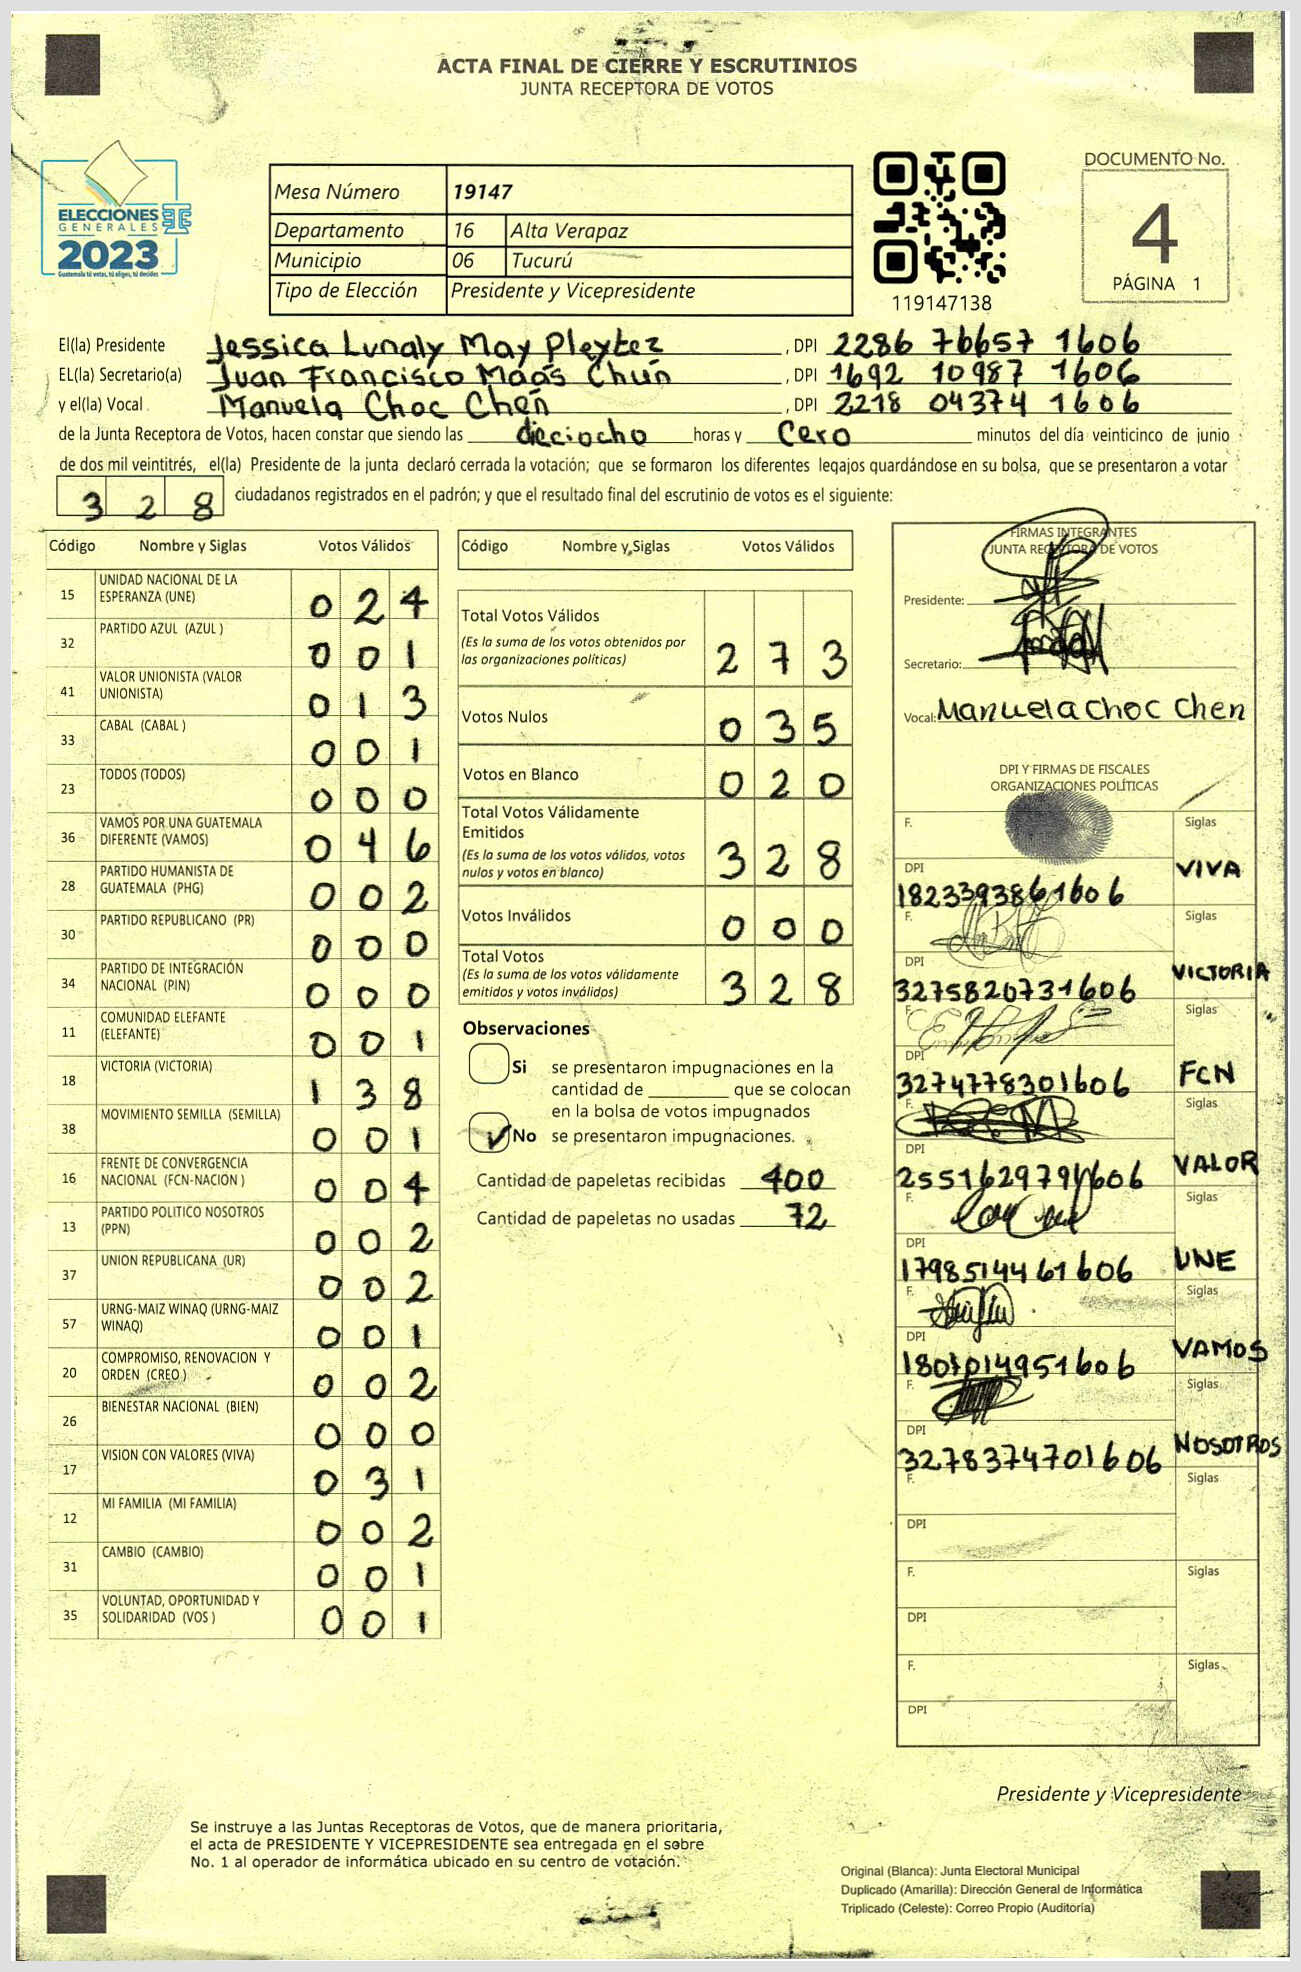 ACTA FINAL DE CIERRE Y ESCRUTINIOS
JUNTA RECEPTORA DE VOTOS
ELECCIONES
GENERALES
2023
Guatemala tú votas, tú eliges, tú decides
Mesa Número 19147
Departamento 16 Alta Verapaz
Municipio 06 Tucurú
Tipo de Elección Presidente y Vicepresidente
119147138
DOCUMENTO No.
4
PÁGINA 1
El(la) Presidente Jessica Lunaly May Pleytez , DPI 2286 76657 1606
EL(la) Secretario(a) Juan Francisco Maas Chun , DPI 1692 10987 1606
y el(la) Vocal Manuela Choc Chen , DPI 2218 04374 1606
de la Junta Receptora de Votos, hacen constar que siendo las dieciocho horas y cero minutos del día veinticinco de junio
de dos mil veintitrés, el(la) Presidente de la junta declaró cerrada la votación; que se formaron los diferentes legajos guardándose en su bolsa, que se presentaron a votar
328 ciudadanos registrados en el padrón; y que el resultado final del escrutinio de votos es el siguiente:
Código Nombre y Siglas Votos Válidos
15 UNIDAD NACIONAL DE LA ESPERANZA (UNE) 024
32 PARTIDO AZUL (AZUL ) 001
41 VALOR UNIONISTA (VALOR UNIONISTA) 013
33 CABAL (CABAL ) 001
23 TODOS (TODOS) 000
36 VAMOS POR UNA GUATEMALA DIFERENTE (VAMOS) 046
28 PARTIDO HUMANISTA DE GUATEMALA (PHG) 002
30 PARTIDO REPUBLICANO (PR) 000
34 PARTIDO DE INTEGRACIÓN NACIONAL (PIN) 000
11 COMUNIDAD ELEFANTE (ELEFANTE) 001
18 VICTORIA (VICTORIA) 138
38 MOVIMIENTO SEMILLA (SEMILLA) 001
16 FRENTE DE CONVERGENCIA NACIONAL (FCN-NACION ) 004
13 PARTIDO POLITICO NOSOTROS (PPN) 002
37 UNION REPUBLICANA (UR) 002
57 URNG-MAIZ WINAQ (URNG-MAIZ WINAQ) 001
20 COMPROMISO, RENOVACION Y ORDEN (CREO ) 002
26 BIENESTAR NACIONAL (BIEN) 000
17 VISION CON VALORES (VIVA) 031
12 MI FAMILIA (MI FAMILIA) 002
31 CAMBIO (CAMBIO) 001
35 VOLUNTAD, OPORTUNIDAD Y SOLIDARIDAD (VOS ) 001
Código Nombre y Siglas Votos Válidos
Total Votos Válidos
(Es la suma de los votos obtenidos por
las organizaciones políticas) 273
Votos Nulos 035
Votos en Blanco 020
Total Votos Válidamente
Emitidos
(Es la suma de los votos válidos, votos
nulos y votos en blanco) 328
Votos Inválidos 000
Total Votos
(Es la suma de los votos válidamente
emitidos y votos inválidos) 328
Observaciones
Si se presentaron impugnaciones en la
cantidad de ________ que se colocan
en la bolsa de votos impugnados
No se presentaron impugnaciones.
Cantidad de papeletas recibidas 400
Cantidad de papeletas no usadas 72
FIRMAS INTEGRANTES
JUNTA RECEPTORA DE VOTOS
Presidente:
Secretario:
Vocal: Manuela Choc Chen
DPI Y FIRMAS DE FISCALES
ORGANIZACIONES POLÍTICAS
F. Siglas
DPI 1823393861606 VIVA
F. Siglas
DPI 3275820731606 VICTORIA
F. Siglas
DPI 3274778301606 FCN
F. Siglas
DPI VALOR
F. Siglas
DPI 1798514461606 UNE
F. Siglas
DPI 1807014951606 VAMOS
F. Siglas
DPI 3278374701606 NOSOTROS
F. Siglas
DPI
F. Siglas
DPI
F. Siglas
DPI
Presidente y Vicepresidente
Se instruye a las Juntas Receptoras de Votos, que de manera prioritaria,
el acta de PRESIDENTE Y VICEPRESIDENTE sea entregada en el sobre
No. 1 al operador de informática ubicado en su centro de votación.
Original (Blanca): Junta Electoral Municipal
Duplicado (Amarilla): Dirección General de Informática
Triplicado (Celeste): Correo Propio (Auditoría)